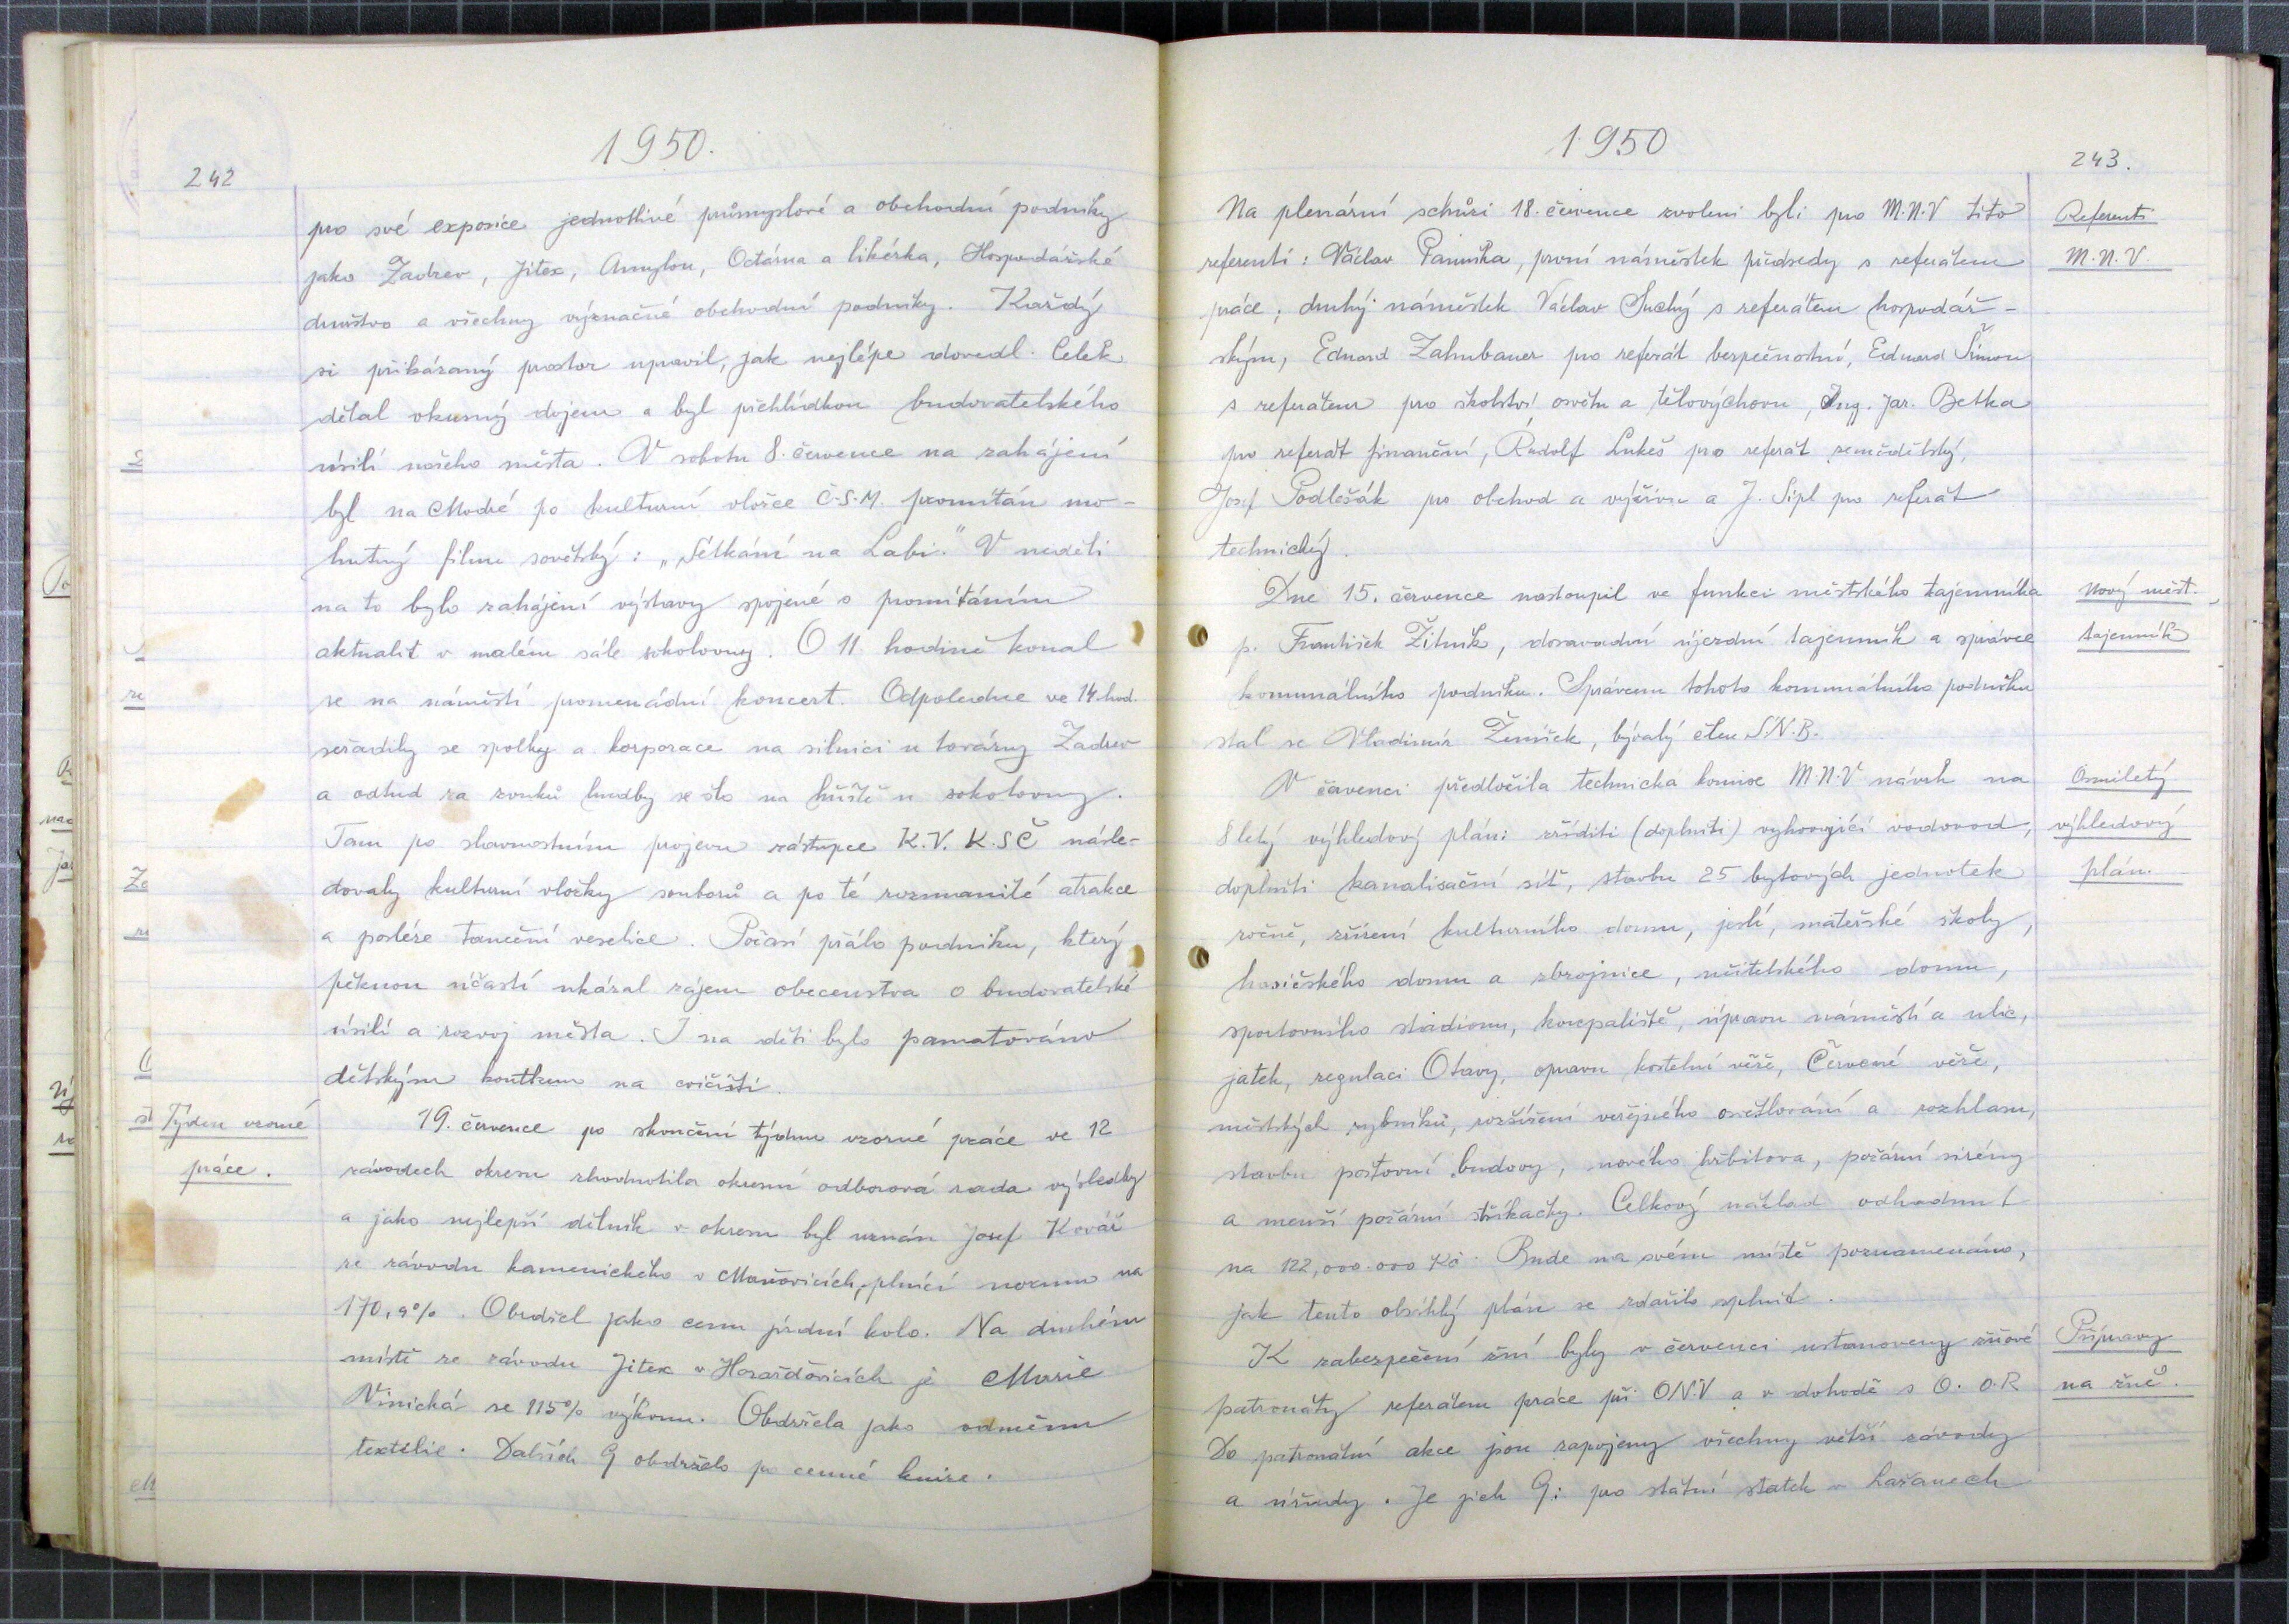 1950.
242
pro své exposice jednotlivé průmyslové a obchodní podniky
jako Zadrev, Jitex, Amylon, Octárna a likérka, Hospodářské
družstvo a všechny význačné obchodní podniky. Každý
si přikázaný prostor upravil, jak nejlépe dovedl. Celek
dělal vkusný dojem a byl přehlídkou budovatelského
úsilí našeho města. V sobotu 8. července na zahájení
byl na Modré po kulturní vložce Č.S.M. promítán mo-
hutný film sovětský: „Setkání na Labi." V neděli
na to bylo zahájení výstavy spojené s promítáním
aktualit v malém sále sokolovny. O 11 hodině konal
se na náměstí promenádní koncert. Odpoledne ve 14. hod.
seřadily se spolky a korporace na silnici u továrny Zadrev
a odtud za zvuků hudby se šlo na hřiště u sokolovny.
Tam po slavnostním projevu zástupce K.V. K.SČ násle-
dovaly kulturní vložky souborů a po té rozmanité atrakce
a posléze taneční veselice. Počasí přálo podniku, který
pěknou účastí ukázal zájem obecenstva o budovatelské
úsilí a rozvoj města. I na děti bylo pamatováno
dětským koutkem na cvičišti.
Týden vzorné
práce.
19. července po skončení týdnu vzorné práce ve 12
závodech okresu zhodnotila okresní odborová rada výsledky
a jako nejlepší dělník v okresu byl uznán Josef Kovář
ze závodu kamenického v Maňovicích, plnící normu na
170,9%. Obdržel jako cenu jízdní kolo. Na druhém
místě ze závodu Jitex v Horažďovicích je Marie
Vinická se 115% výkonu. Obdržela jako odměnu
textilie. Dalších 9 obdrželo po cenné knize.
1950
243.
Na plenární schůzi 18. července zvoleni byli pro M.N.V tito
referenti: Václav Panuška, první náměstek předsedy s referátem
práce, druhý náměstek Václav Suchý s referátem hospodář-
ským, Eduard Zahnbauer pro referát bezpečnostní, Eduard Šimon
s referátem pro školství osvětu a tělovýchovu, Ing. Jar. Betka
pro referát finanční, Rudolf Lukeš pro referát zemědělský,
Josef Podlešák pro obchod a výživu a J. Sipl pro referát
technický.
Referenti
M.N.V.
Dne 15. července nastoupil ve funkci městského tajemníka
p. František Žitník, dosavadní újezdní tajemník a správce
komunálního podniku. Správcem tohoto komunálního podniku
stal se Vladimír Ženíšek, bývalý člen S.N.B.
Nový měst.
tajemník
V červenci předložila technická komise M.N.V návrh na
8letý výhledový plán: zříditi (doplniti) vyhovující vodovod,
doplniti kanalisační síť, stavbu 25 bytových jednotek
ročně, zřízení kulturního domu, jeslí, mateřské školy,
hasičského domu a zbrojnice, učitelského domu,
sportovního stadionu, koupaliště, úpravu náměstí a ulic,
jatek, regulaci Otavy, opravu kostelní věže, Červené věže,
městských rybníků, rozšíření veřejného osvětlování a rozhlasu,
stavbu poštovní budovy, nového hřbitova, požární sirény
a menší požární stříkačky. Celkový náklad odhadnut
na 122,000.000 Kč. Bude na svém místě poznamenáno,
jak tento obsáhlý plán se zdařilo splnit.
Osmiletý
výhledový
plán.
K zabezpečení žní byly v červenci ustanoveny žňové
patronáty referátem práce při ONV a v dohodě s O.O.R
Do patronátní akce jsou zapojeny všechny větší závody
a úřady. Je jich 9: pro státní statek v Lažanech
Přípravy
na žně.